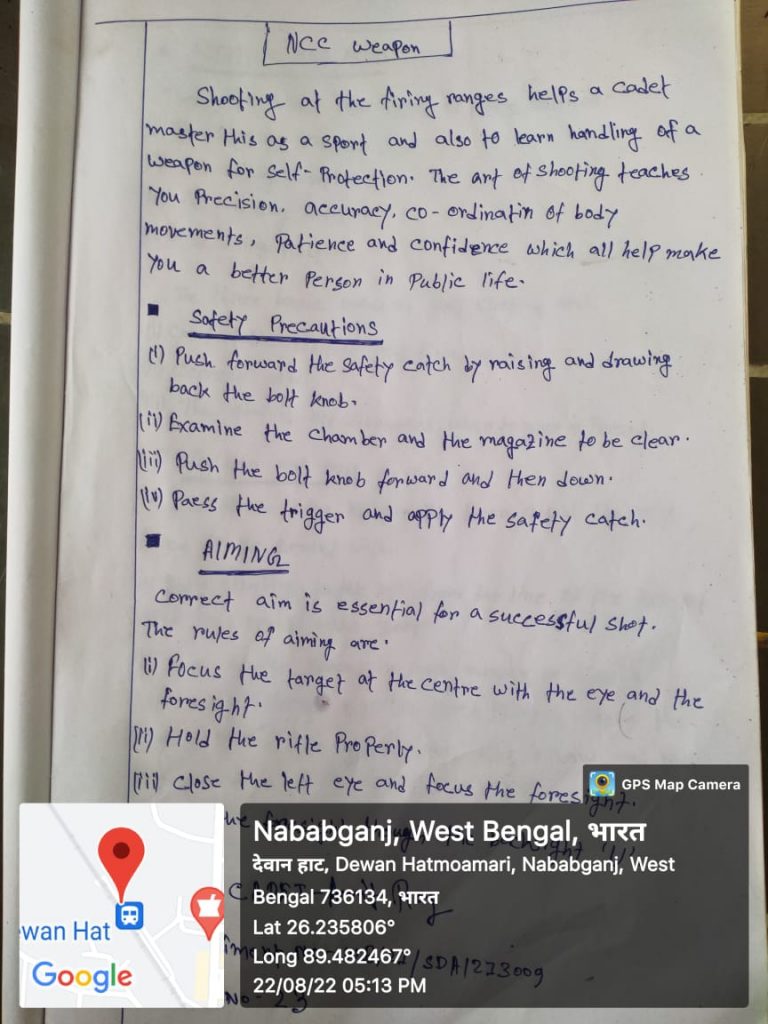 NCC weapon
Shooting at the firing ranges helps a cadet
master this as a sport and also to learn handling of a
weapon for self-Protection. The art of shooting teaches
You Precision. accuracy. co-ordinatin of body
movements, Patience and confidence which all help make
You a better Person in Public life.
Safety Precautions
(i) Push forward the safety catch by raising and drawing
back the bolt knob.
(ii) Examine the chamber and the magazine to be clear.
(iii) Push the bolt knob forward and then down.
(iv) Paess the trigger and apply the safety catch.
AIMING
correct aim is essential for a successful shot.
The rules of aiming are.
(i) Focus the target at the centre with the eye and the
foresight.
(ii) Hold the rifle Properly.
(iii) close the left eye and focus the foresight.
GPS Map Camera
Nababganj, West Bengal, भारत
देवान हाट, Dewan Hatmoamari, Nababganj, West
Bengal 736134, भारत
Lat 26.235806°
Long 89.482467°
22/08/22 05:13 PM
wan Hat
Google
/SDA/273009
No - 23